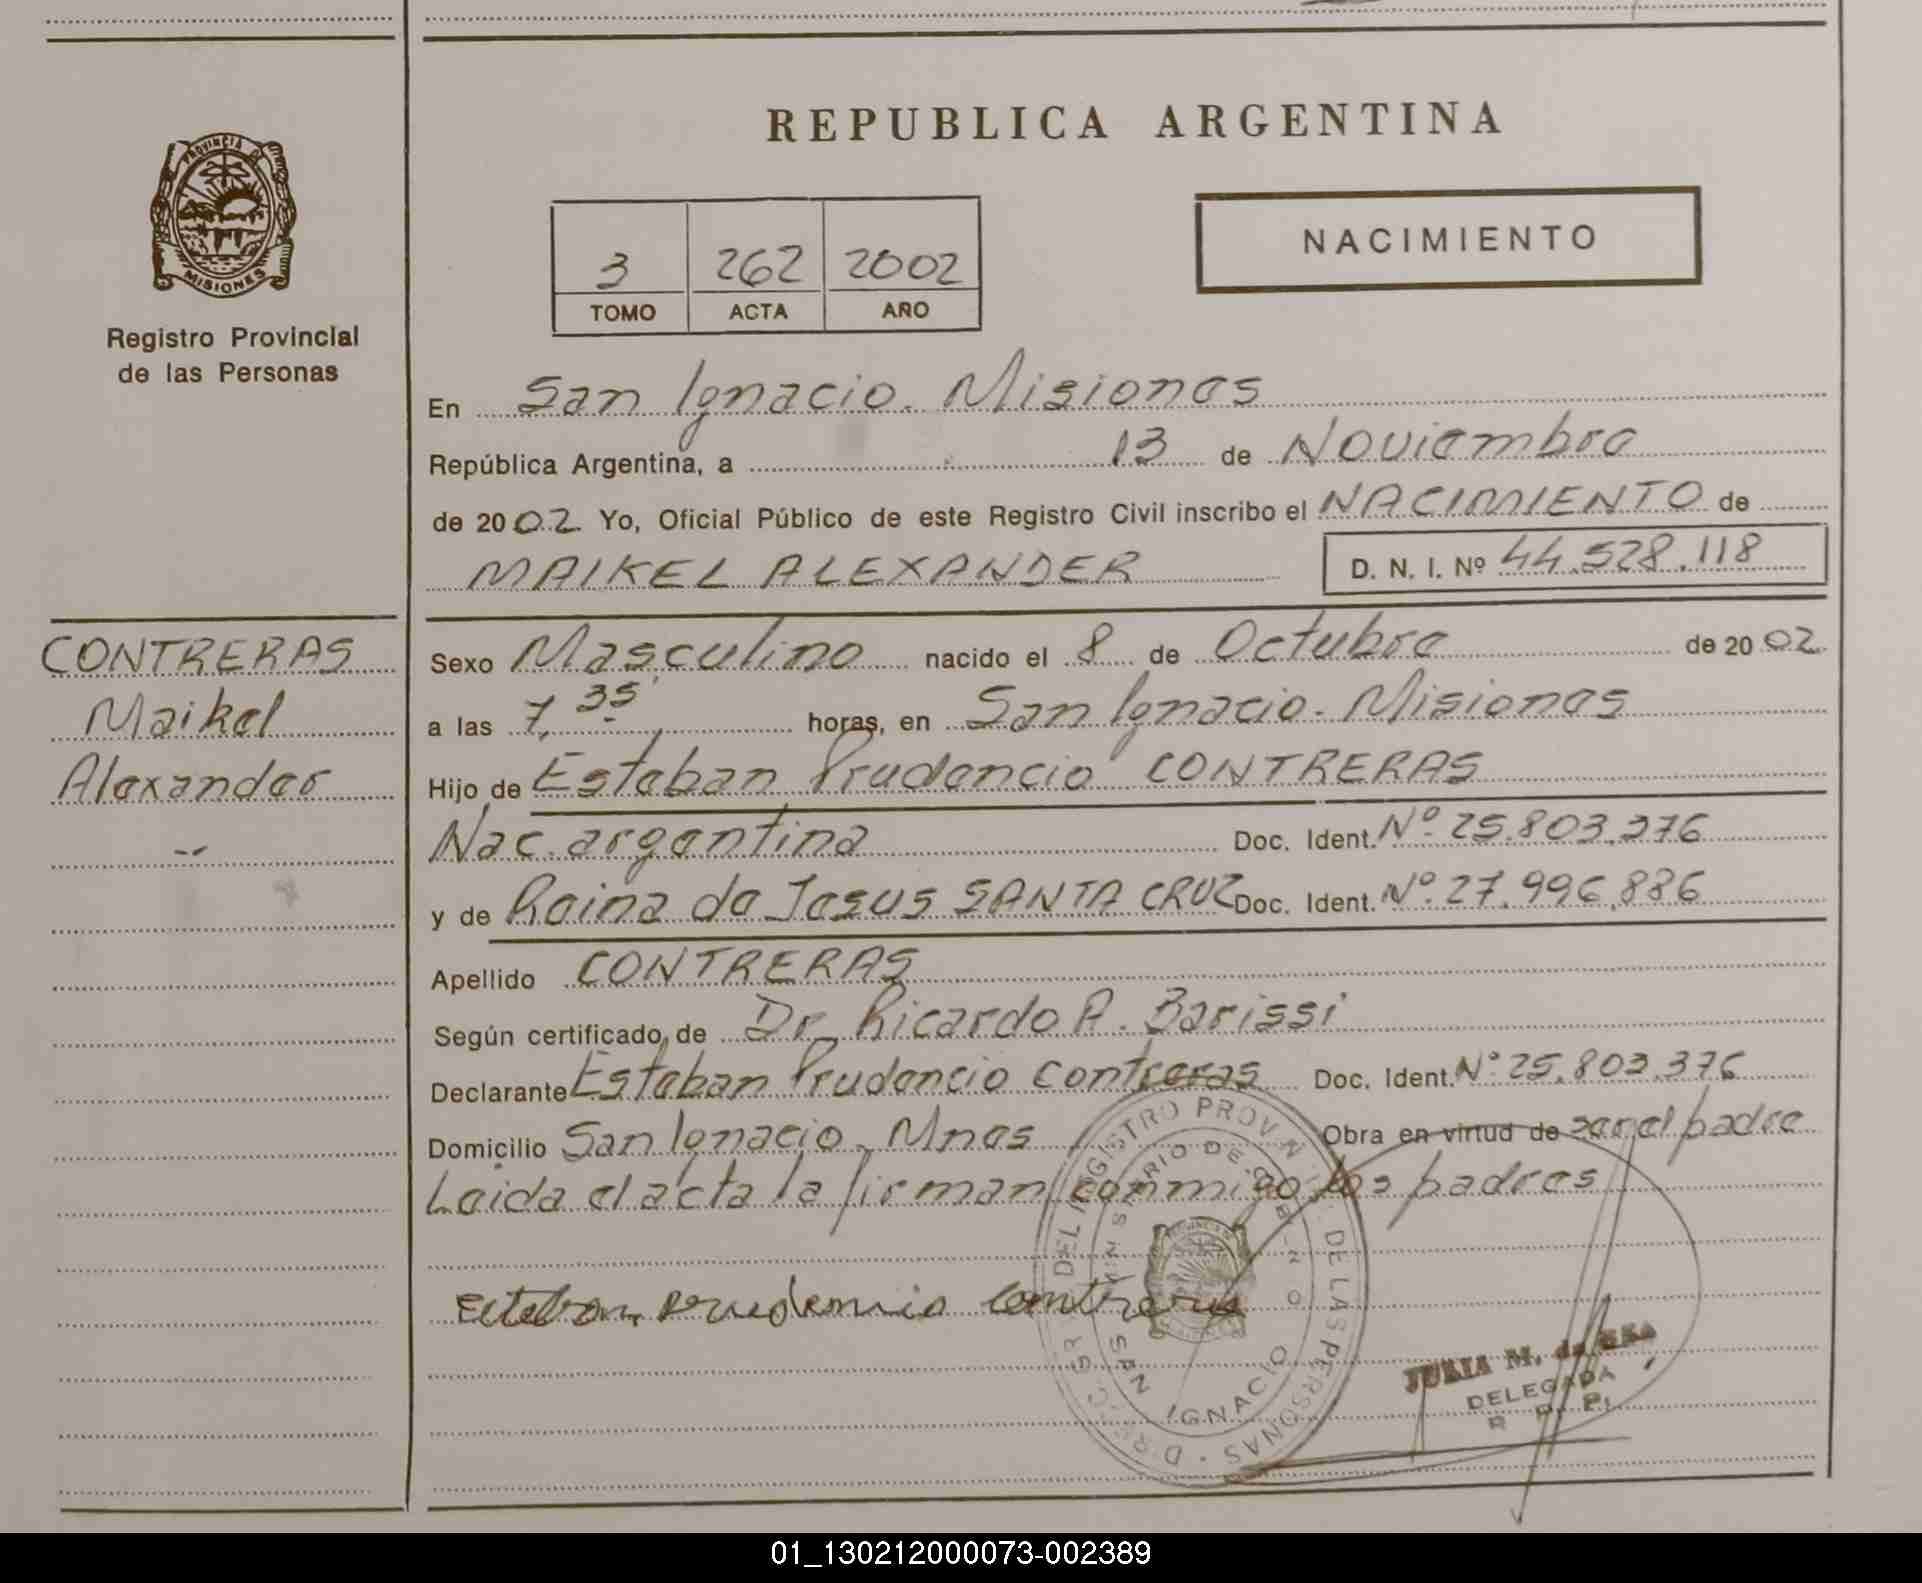 REPUBLICA ARGENTINA
PROVINCIA DE
MISIONES
Registro Provincial
de las Personas
3 262 2002
TOMO ACTA AÑO
NACIMIENTO
En San Ignacio. Misiones
República Argentina, a 13 de Noviembre
de 2002 Yo, Oficial Público de este Registro Civil inscribo el NACIMIENTO de
MAIKEL ALEXANDER D. N. I. Nº 44.528.118
CONTRERAS
Maikel
Alexander
Sexo Masculino nacido el 8 de Octubre de 2002
a las 7,35 horas, en San Ignacio. Misiones
Hijo de Esteban Prudencio CONTRERAS
Nac. argentina Doc. Ident. Nº 25.803.376
y de Reina de Jesus SANTA CRUZ Doc. Ident. Nº 27.996.886
Apellido CONTRERAS
Según certificado de Dr. Ricardo A. Barissi
Declarante Esteban Prudencio Contreras Doc. Ident. Nº 25.803.376
Domicilio San Ignacio. Mnes Obra en virtud de ser el padre
Leida el acta la firman conmigo los padres
Esteban Prudencio Contreras
DEL REGISTRO PROV. DE LAS PERSONAS
SAN IGNACIO
DELEGADA
R. P. P.
01_130212000073-002389